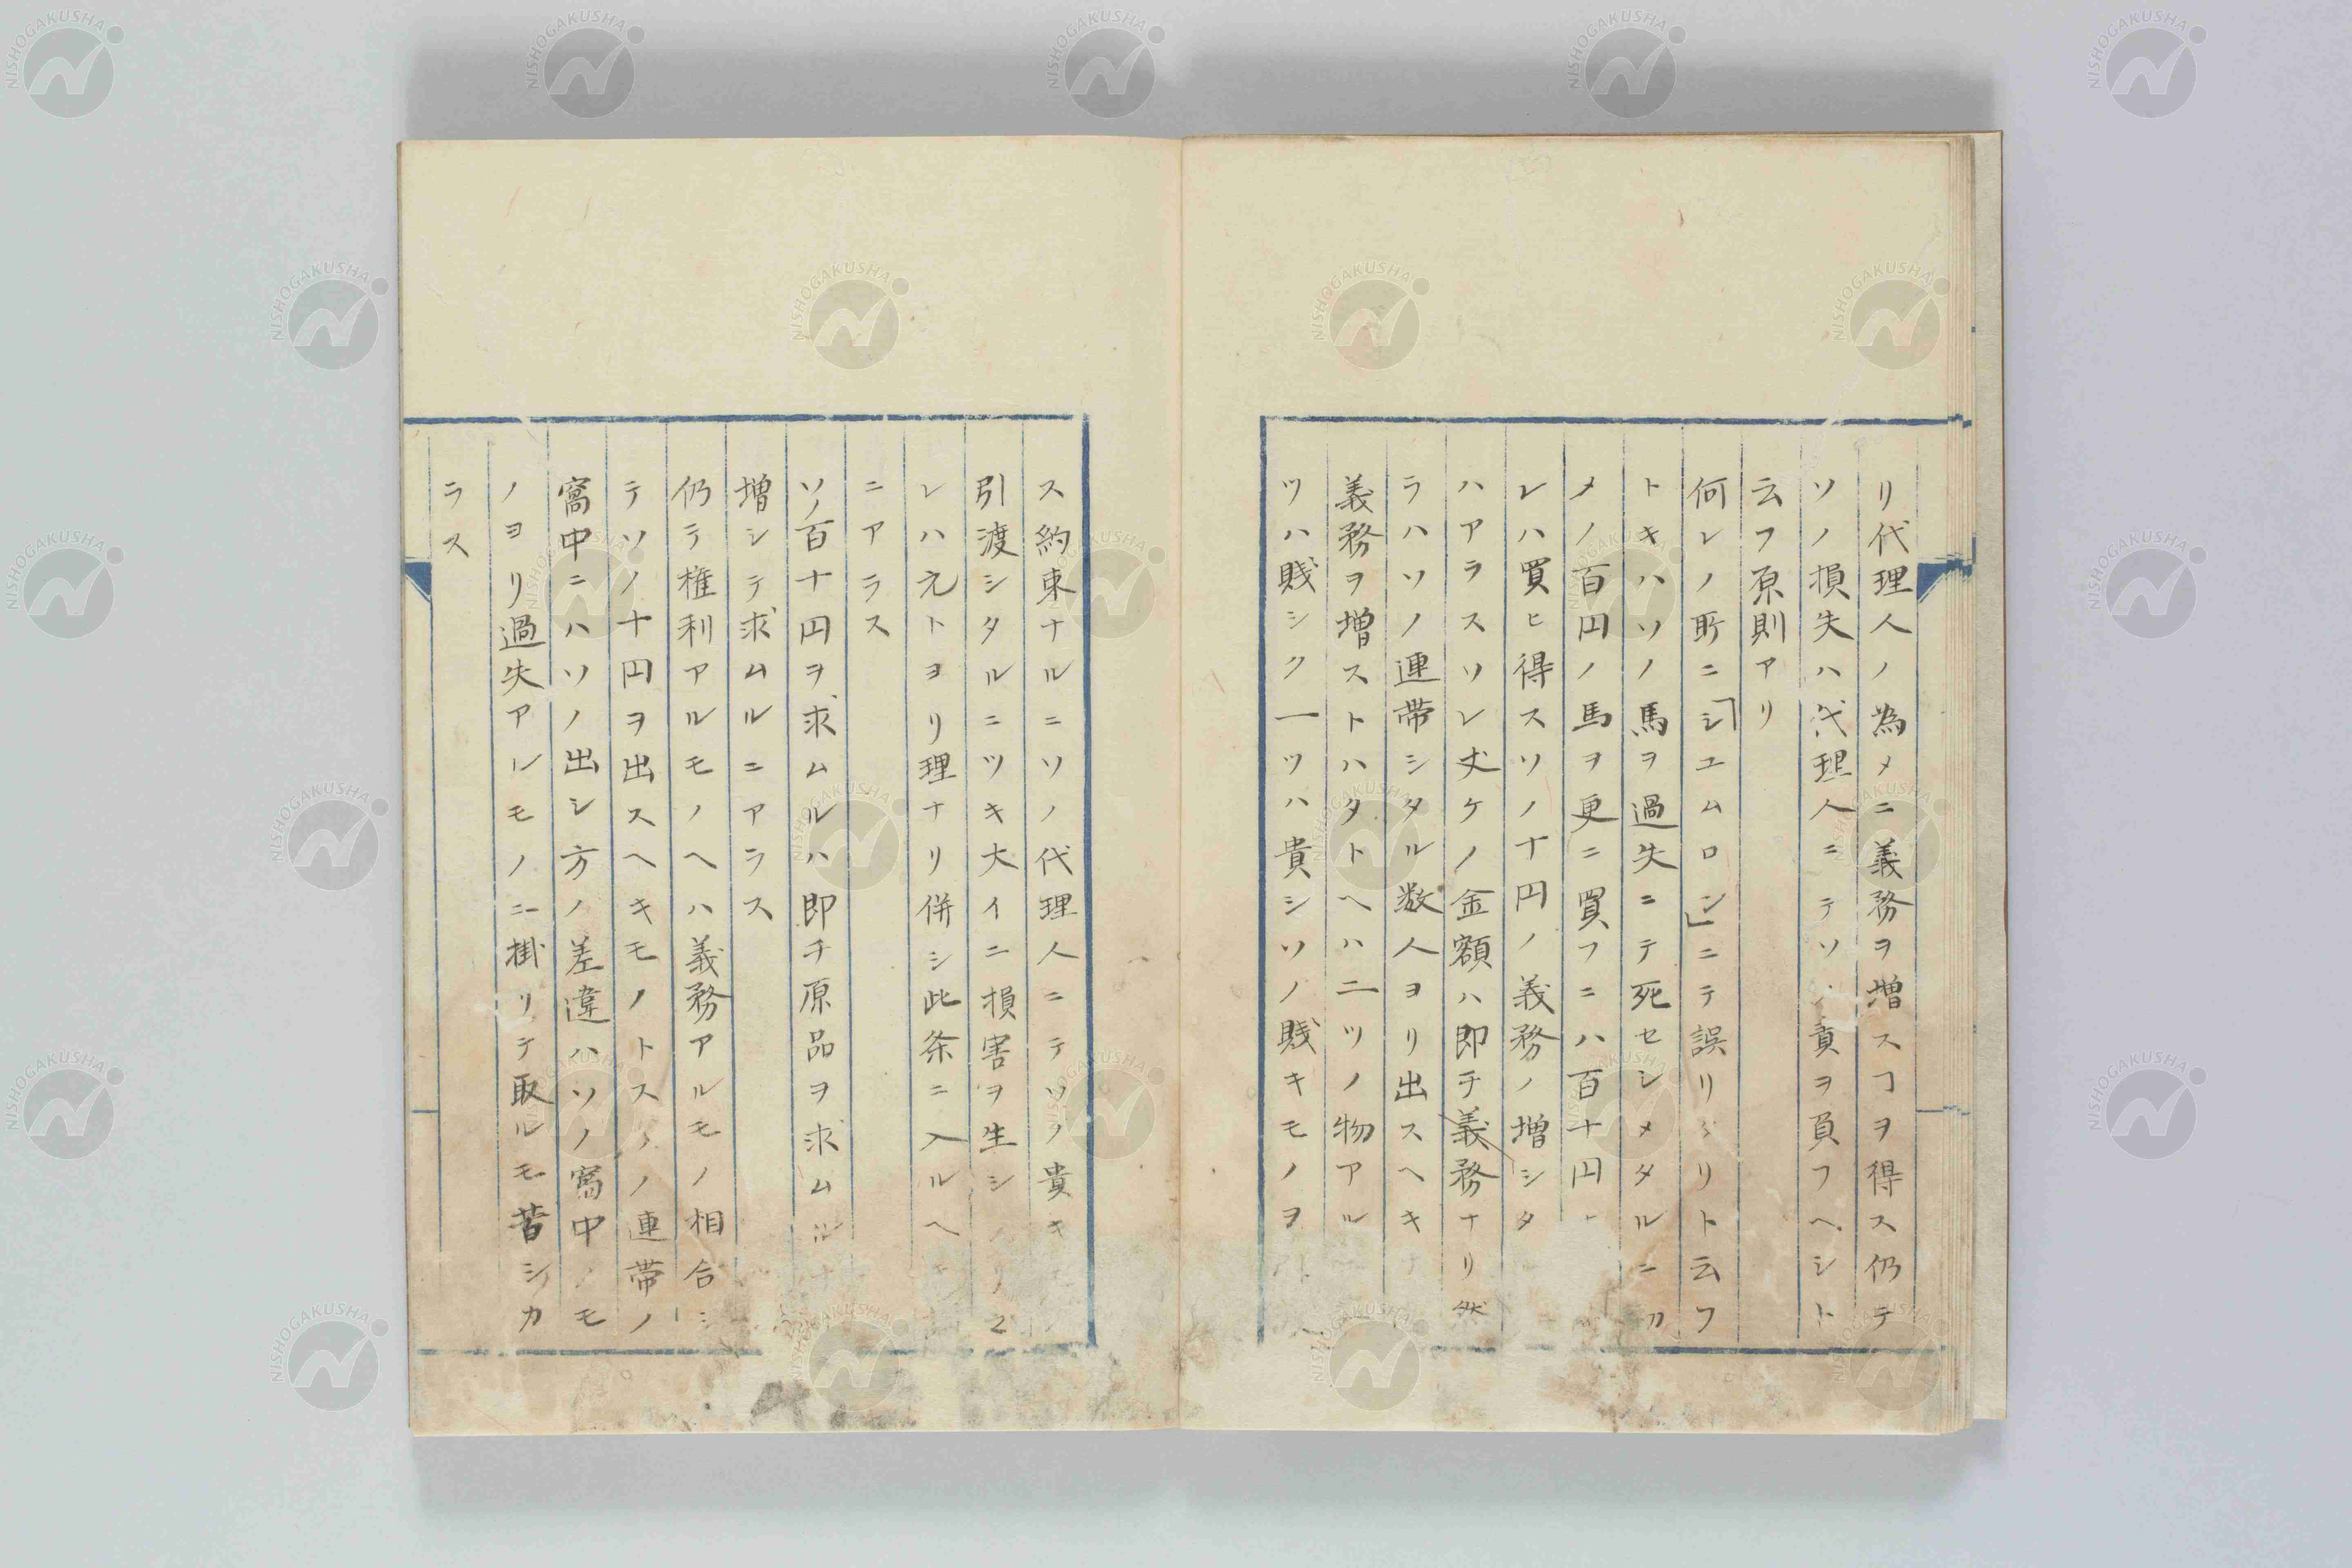 リ代理人ノ為メニ義務ヲ増スヿヲ得ス仍テ
ソノ損失ハ代理人ニテソノ責ヲ負フヘシト
云フ原則アリ
何レノ所ニ「シユムロン」ニテ誤リリト云フ
トキハソノ馬ヲ過失ニテ死セシメタルニカ
メノ百円ノ馬ヲ更ニ買フニハ百十円
レハ買ヒ得スソノ十円ノ義務ノ増シタ
ハアラスソレ丈ケノ金額ハ即チ義務ナリ然
ラハソノ連帯シタル数人ヨリ出スヘキ
義務ヲ増ストハタトヘハ二ツノ物アル
ツハ賤シク一ツハ貴シソノ賤キモノヲ
ス約束ナルニソノ代理人ニテソノ貴キ
引渡シタルニツキ大イニ損害ヲ生シ之
レハ元トヨリ理ナリ併シ此条ニ入ルヘ
ニアラス
ソノ百十円ヲ求ムルハ即チ原品ヲ求ム
増シテ求ムルニアラス
仍テ権利アルモノヘハ義務アルモノ相合シ
テソノ十円ヲ出スヘキモノトスノ連帯ノ
窩中ニハソノ出シ方ノ差違ハソノ窩中ノモ
ノヨリ過失アルモノニ掛リテ取ルモ苦シカ
ラス
NISHOGAKUSHA